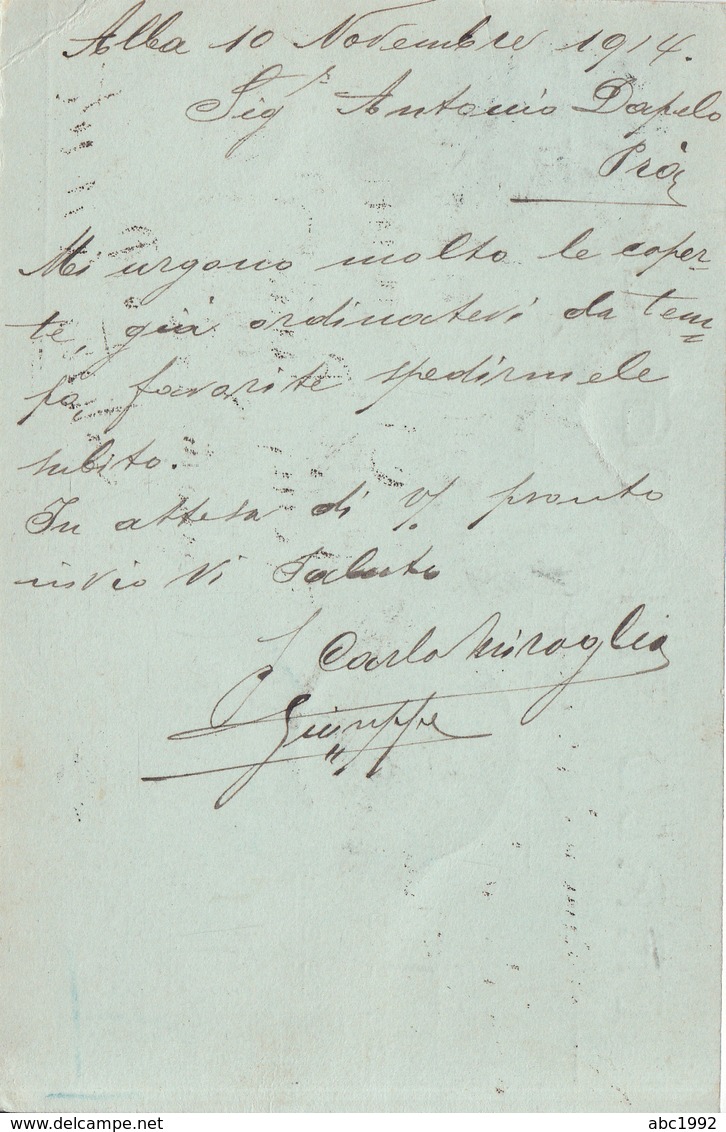 Alba 10 Novembre 1914.
Sigʳ Antonio Dapelo
Prà
Mi urgono molto le coper-
te, già ordinatevi da tem-
po, favorite spedirmele
subito.
In attesa di V/ pronto
invio Vi Saluto
Carlo Miroglio
Giuseppe
delcampe.net
abc1992